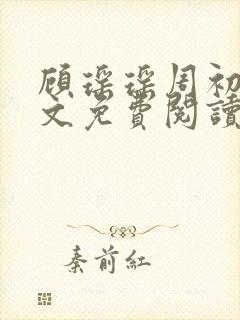 顾瑶瑶周初
文免費閱讀
秦前红